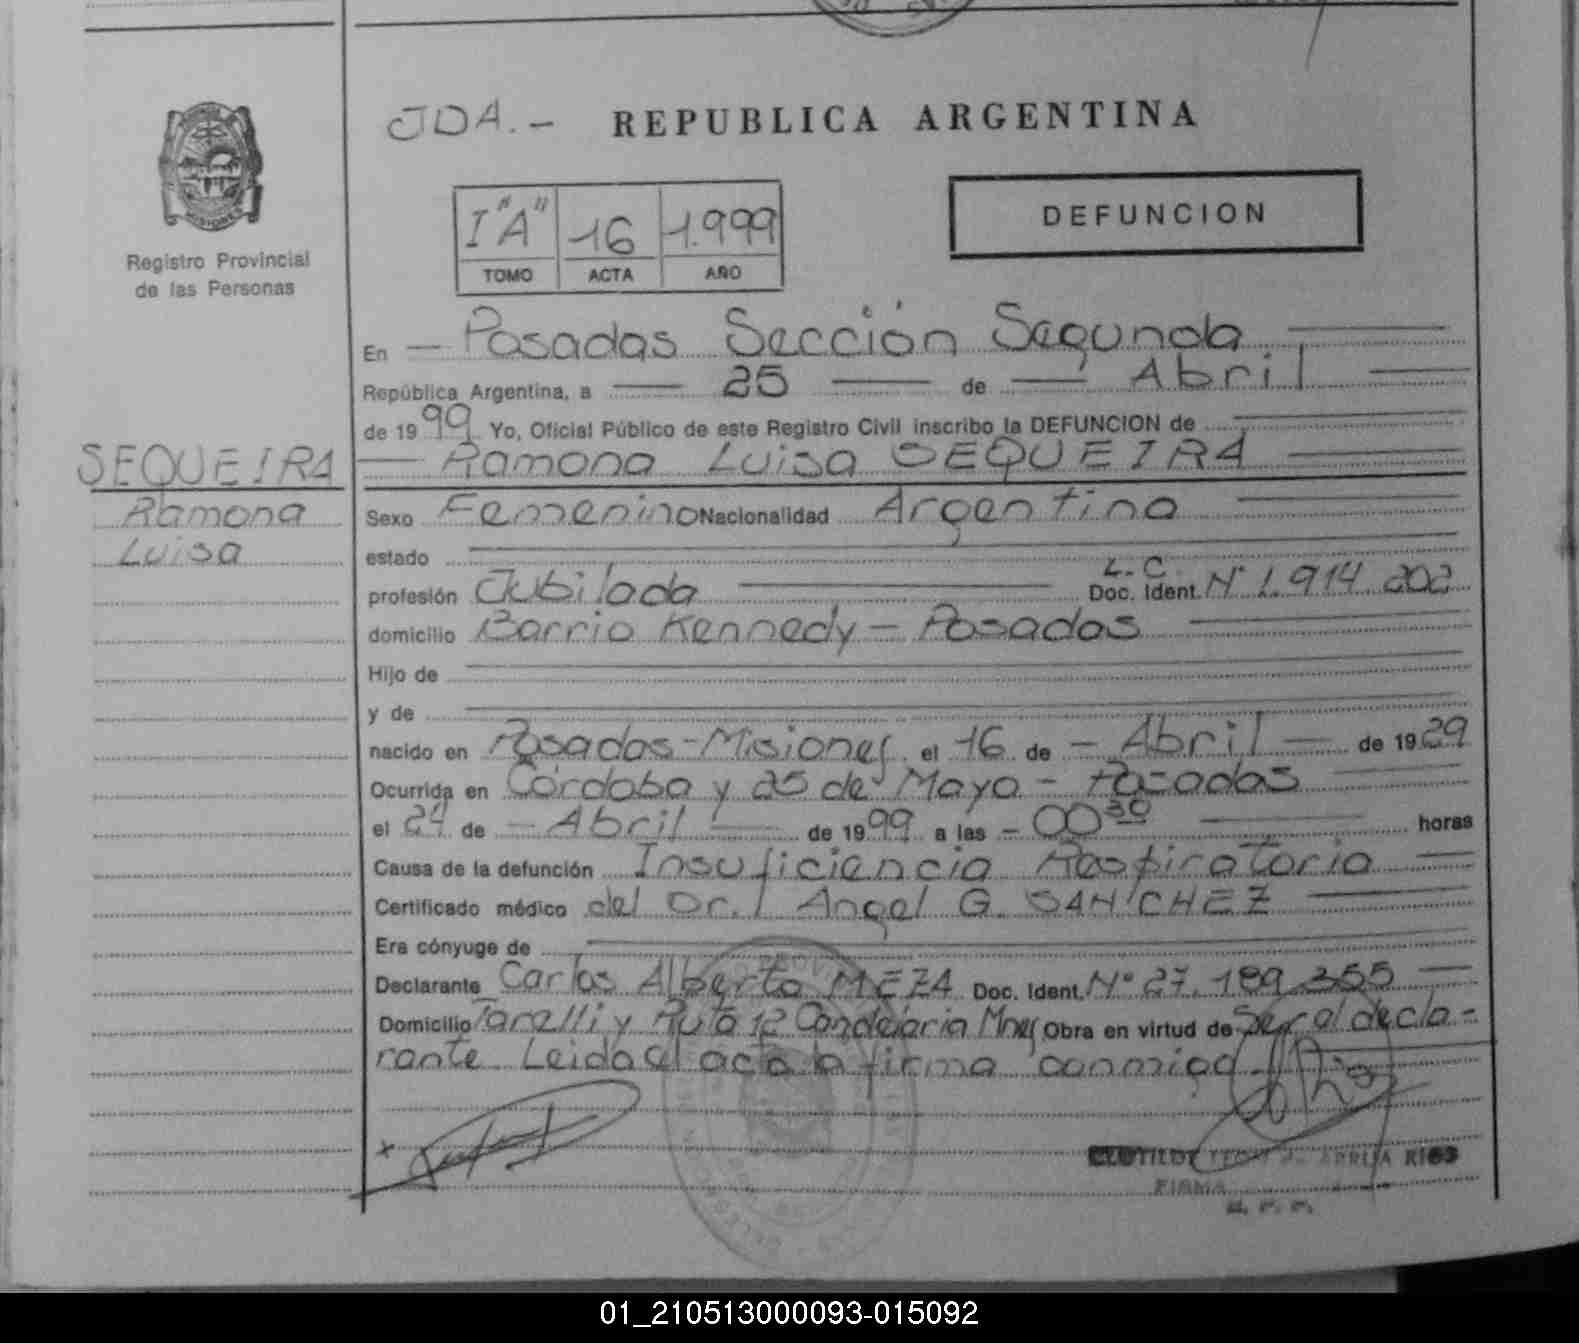 JDA.- REPUBLICA ARGENTINA
DEFUNCION
I "A" 16 1.999
TOMO ACTA AÑO
MISIONES
Registro Provincial
de las Personas
En — Posadas Sección Segunda
República Argentina, a — 25 — de — Abril
de 1999 Yo, Oficial Público de este Registro Civil inscribo la DEFUNCION de
SEQUEIRA
Ramona
Luisa
— Ramona Luisa SEQUEIRA
Sexo Femenino Nacionalidad Argentina
estado
profesión Jubilada L.C. Doc. Ident. N° 1.914.202
domicilio Barrio Kennedy – Posadas
Hijo de
y de
nacido en Posadas-Misiones el 16 de – Abril — de 1929
Ocurrida en Córdoba y 25 de Mayo – Posadas
el 24 de – Abril — de 1999 a las – 00 30 horas
Causa de la defunción Insuficiencia Respiratoria
Certificado médico del Dr. Angel G. SANCHEZ
Era cónyuge de
Declarante Carlos Alberto MEZA Doc. Ident. N° 27.189.355
Domicilio Tarelli y Ruta 12 Candelaria Mnes Obra en virtud de Ser al decla-
rante Leida el acta la firma conmigo
RIOS
FIRMA
01_210513000093-015092